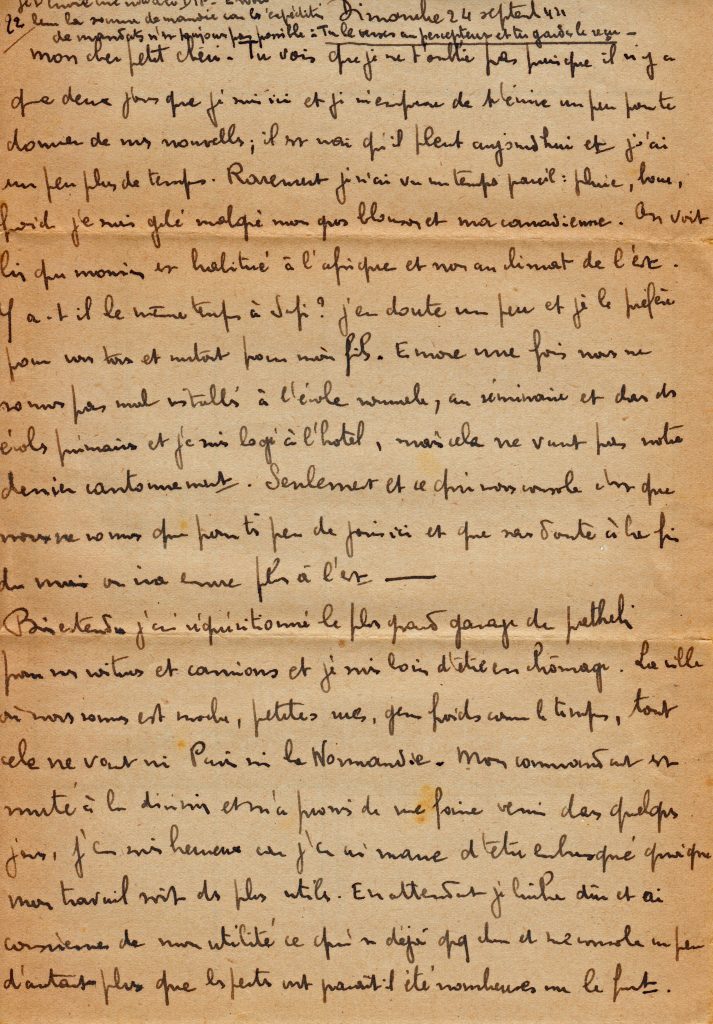 Dimanche 24 septent 44
22 bum la somme demandée car l'expédition
de mandats n'est toujours pas possible. Tu le verses au percepteur et tu gardes le reçu -
mon cher petit chéri - Tu vois que je ne t'oublie pas puisque il n'y a
que deux jours que je suis ici et je m'empresse de t'écrire un peu pour te
donner de mes nouvelles ; il est vrai qu'il pleut aujourd'hui et j'ai
un peu plus de temps. Rarement je n'ai vu un temps pareil : pluie, boue,
froid je suis gelé malgré mon gros blouson et ma canadienne. On voit
bien que mounin est habitué à l'afrique et non au climat de l'est.
Y a-t-il le même temps à Safi ? j'en doute un peu et je le préfère
pour vous tous et surtout pour mon fils. Encore une fois nous ne
sommes pas mal installés à l'école normale, au séminaire et dans des
écoles primaires et je suis logé à l'hotel, mais cela ne vaut pas notre
dernier cantonnement. Seulement et ce qui nous console c'est que
nous ne sommes que pour très peu de jours ici et que sans doute à la fin
du mois on ira encore plus à l'est —
Bien entendu j'ai réquisitionné le plus grand garage du
pour mes voitures et camions et je suis loin d'être en chômage. La ville
où nous sommes est moche, petites rues, gens froids comme le temps, tout
cela ne vaut ni Paris ni la Normandie. Mon commandant est
muté à la division et m'a promis de me faire venir dans quelques
jours, j'en suis heureux car j'en ai marre d'être embusqué quoique
mon travail soit des plus utiles. En attendant je dur et ai
conscience de mon utilité ce qui est déjà qq chose et me console un peu
d'autant plus que les pertes ont parait-il été nombreuses sur le front.